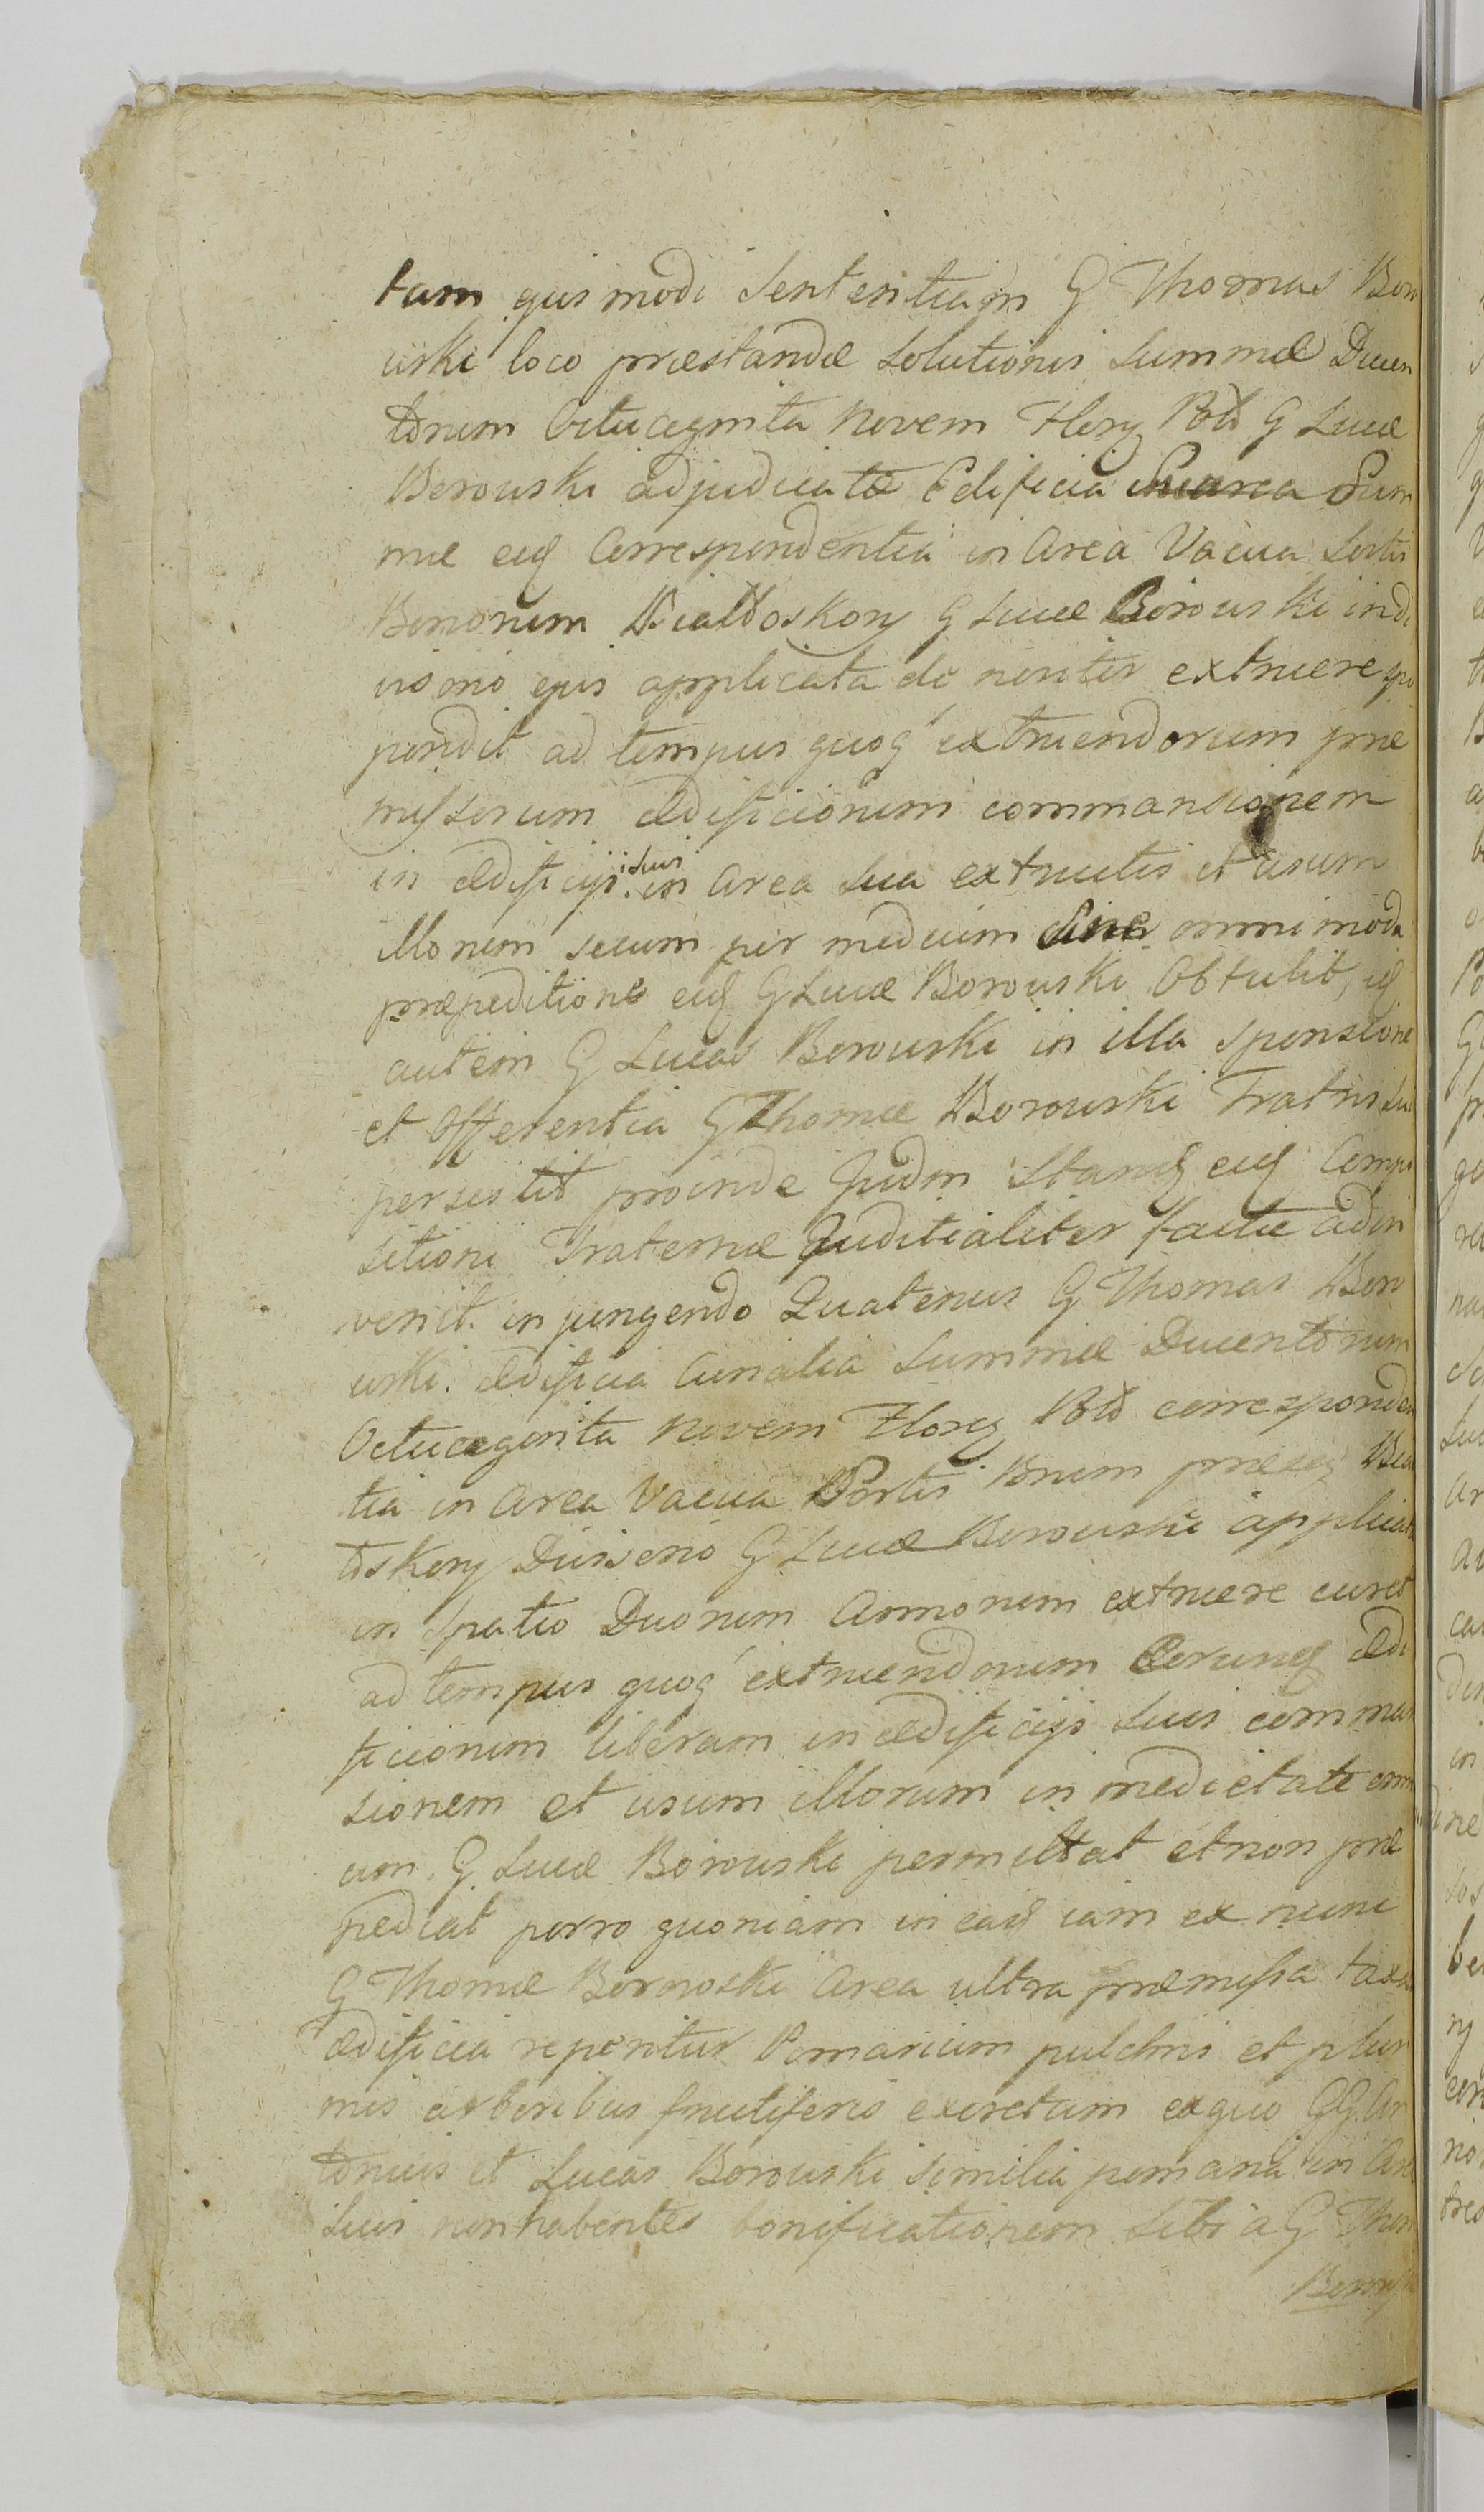 tam ejusmodi Sententiam G Thomas Boro
wski loco præstandæ Solutionis Summæ Ducen
torum Octuaginta Novem Floꝝ Pol G Lucæ
Borowski adjudicatæ Edificia Sum
mæ eid Correspondentia in Area Vacua Sortis
Bonorum Białłoskory G Lucæ Borowski indi
visorio ejus applicata de noviter extruere spo
pondit ad tempus quoq́ extruendorum præ
missorum ædificiorum commansionem
in ædificijs suis in Area Sua extructis et usum
illorum secum per medium Sine omnimoda
præpeditione eid G Lucæ Borowski Obtulit, id
autem G Lucas Borowski in illa Sponsione
et Offerentia G Thomæ Borowski Fratris Sui
persistit proinde Judm Stand eid Compo
sitioni Fraternæ Juditialiter factæ adin
venit. injungendo Quatenus G Thomas Boro
wski. ædificia Curialia Summæ Ducentorum
Octuaginta Novem Floꝝ Pol corresponden
tia in Area Vacua Sortis Bnum Biał
łoskory Divisorio G Lucæ Borowski applicata
in Spatio Duorum Annorum extruere curet
ad tempus quoq́ extruendorum Eorund ædi
ficiorum liberam in ædificijs Suis comman
sionem et usum illorum in medietate omni
um. G Lucæ Borowski permittat et non præ
pediat porro quoniam in ead iam ex nunc
G Thomæ Borowski Area ultra præmissa taxata
ædificia reperitur Pomarium pulchris et pluri
mis arboribus fructiferis exeretum exquo GG An
tonius et Lucas Borowski Similia pomaria in Areis
Suis non habentes bonificationem Sibi a G Thoma
Borowski